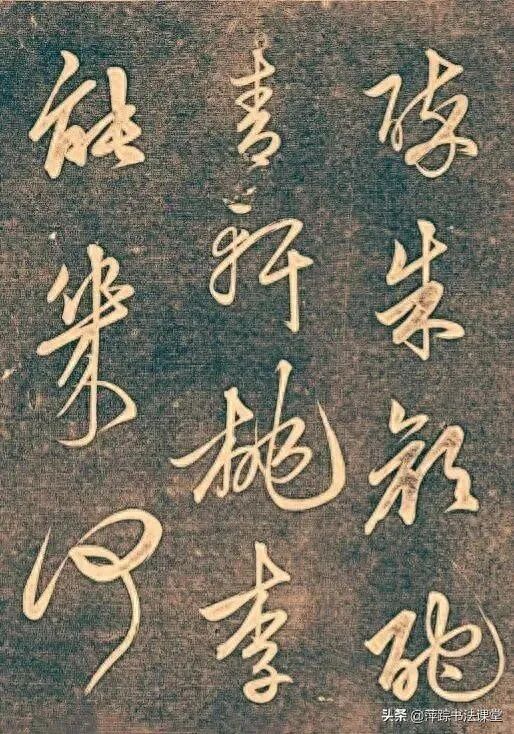 醉朱顏酡
青軒桃李
能幾何
头条 @萍踪书法课堂